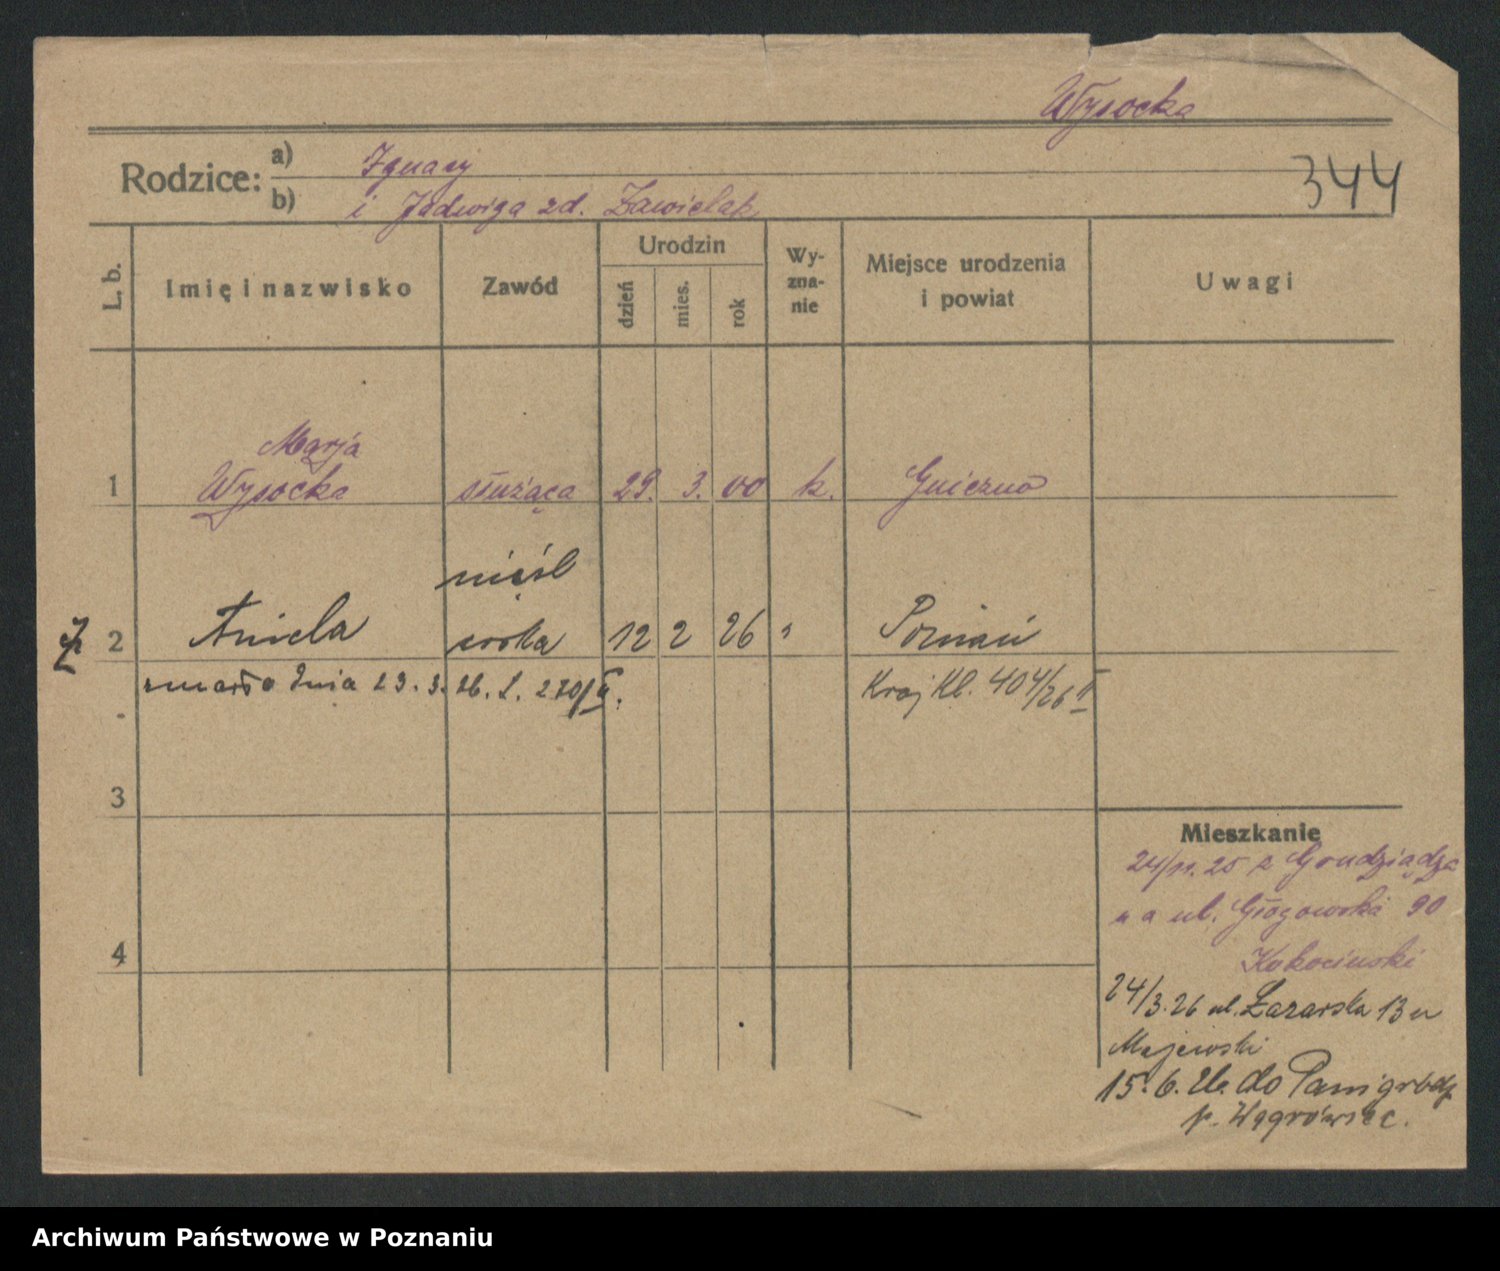 Wysocka
Rodzice:
a) Ignacy
b) i Jadwiga zd. Zawielak
344
L. b.
Imię i nazwisko
Zawód
Urodzin
dzień
mies.
rok
Wy-
zna-
nie
Miejsce urodzenia
i powiat
Uwagi
Marja
1 Wysocka służąca 29. 3. 00 k. Gniezno
nieśl
2 Aniela córka 12 2 26 " Poznań
zmarła dnia 23. 3. 26. L. 270/II.
Kraj Kl. 404/26 II
3
4
Mieszkanie
24/11. 25 z Grudziądza
na ul. Głogowska 90
Kokociński
24/3. 26 ul. Łazarska 13 u
Majewski
15. 6. 26. do Panigródz
p. Wągrówiec.
Archiwum Państwowe w Poznaniu